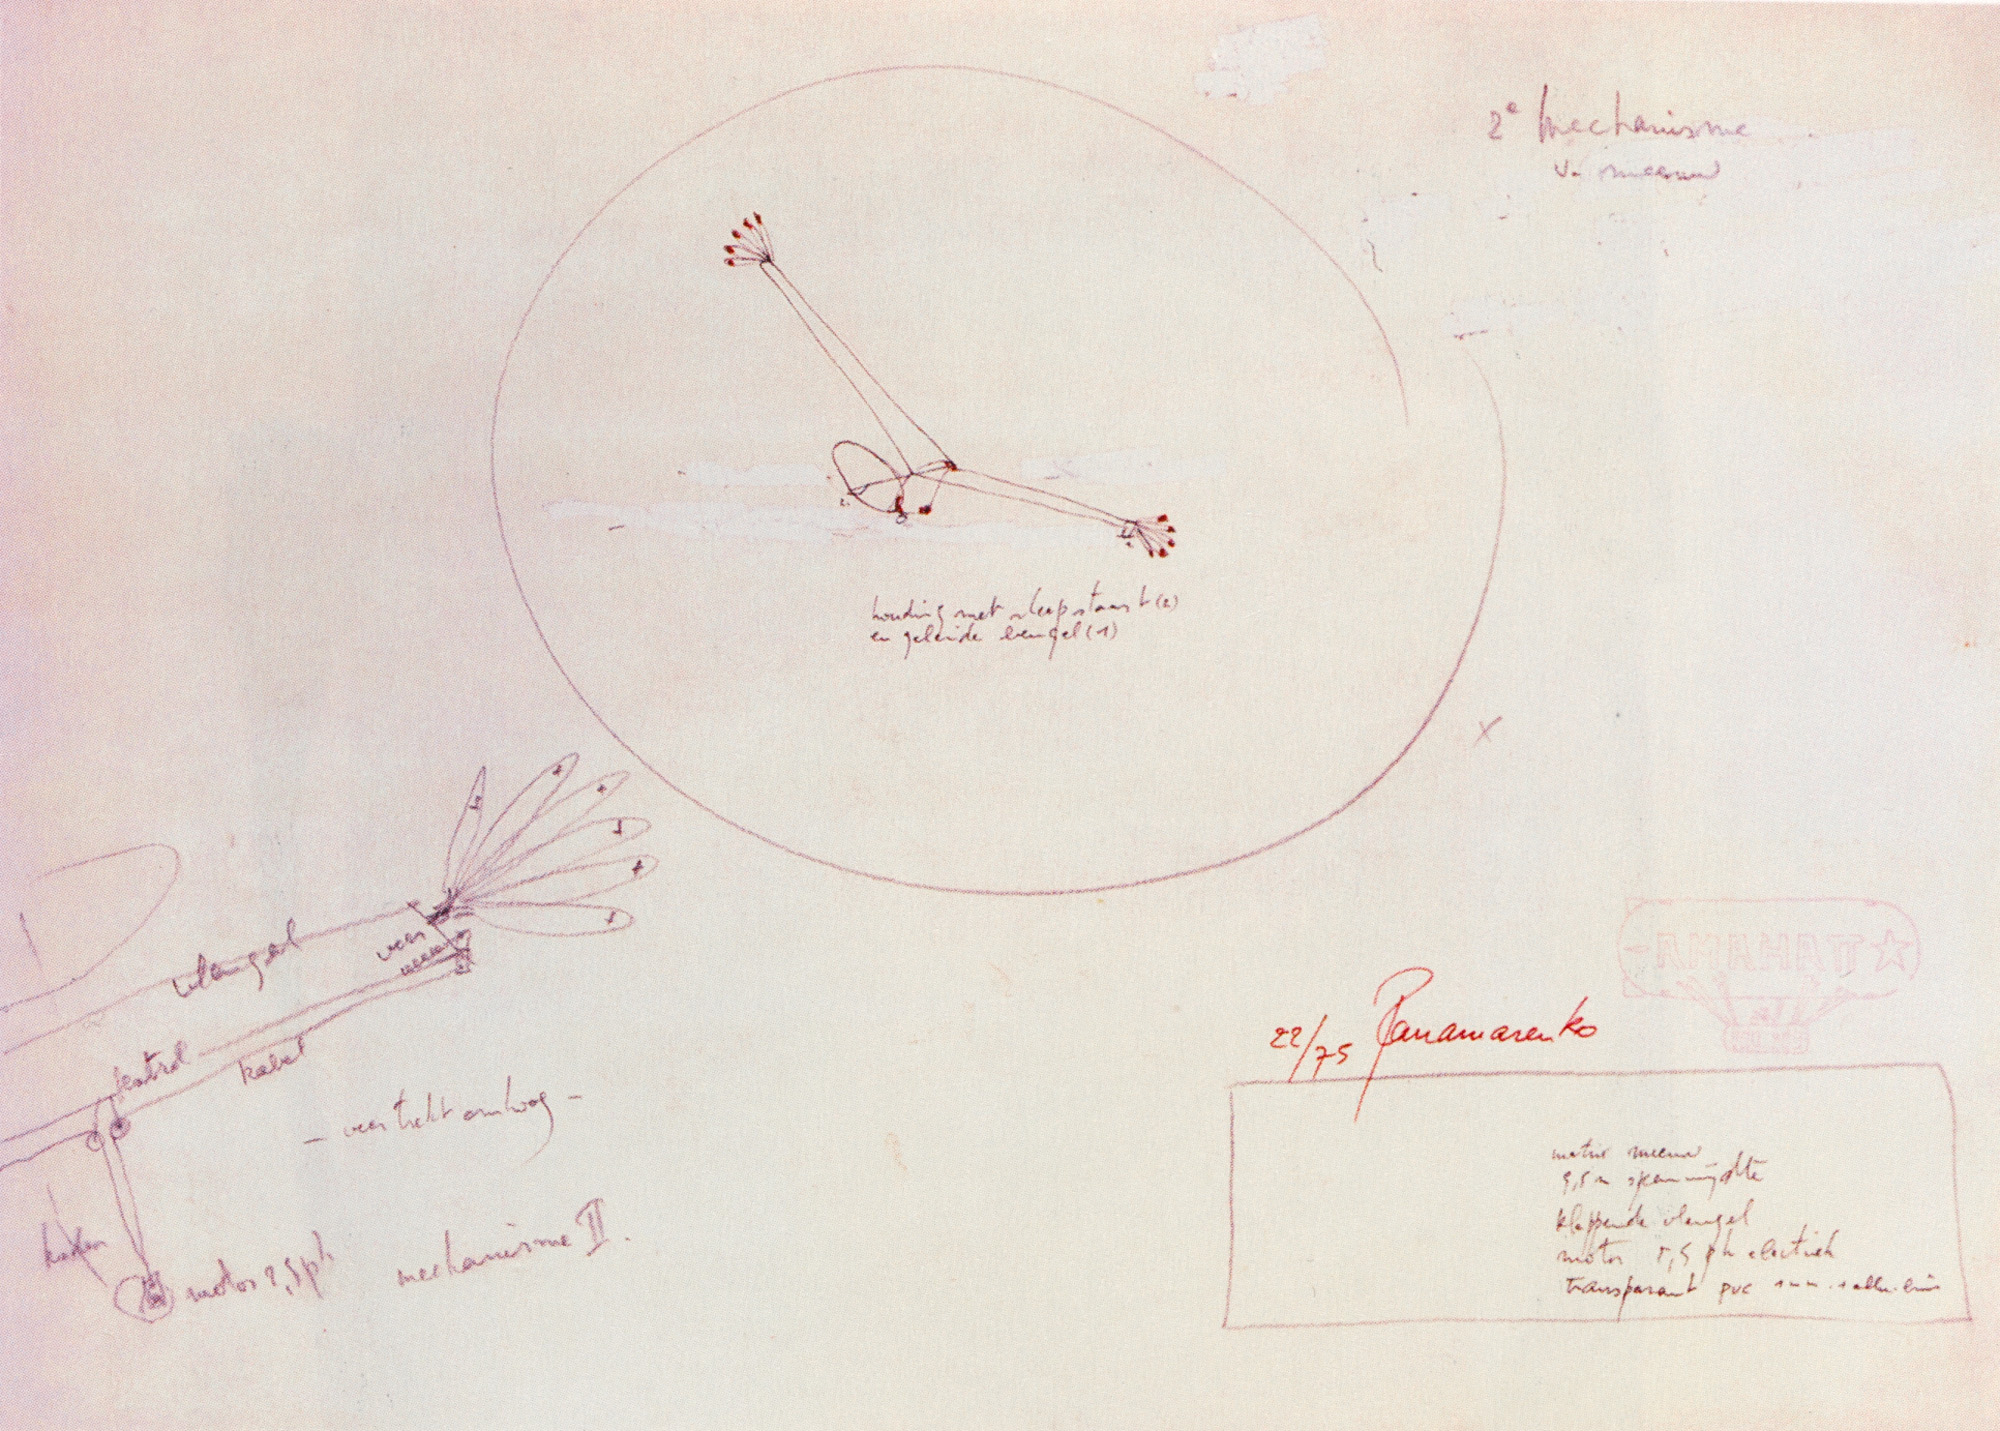 2e mechanisme
v. meeuw
houding met sleepstaart (2)
en geleide beugel (1)
vleugel
veer
katrol
kabel
- veer trekt omhoog -
motor 2,5 ph
mechanisme II.
22/75 Panamarenko
meeuw
spanwijdte
klappende vleugel
motor ph electriek
transparant pvc